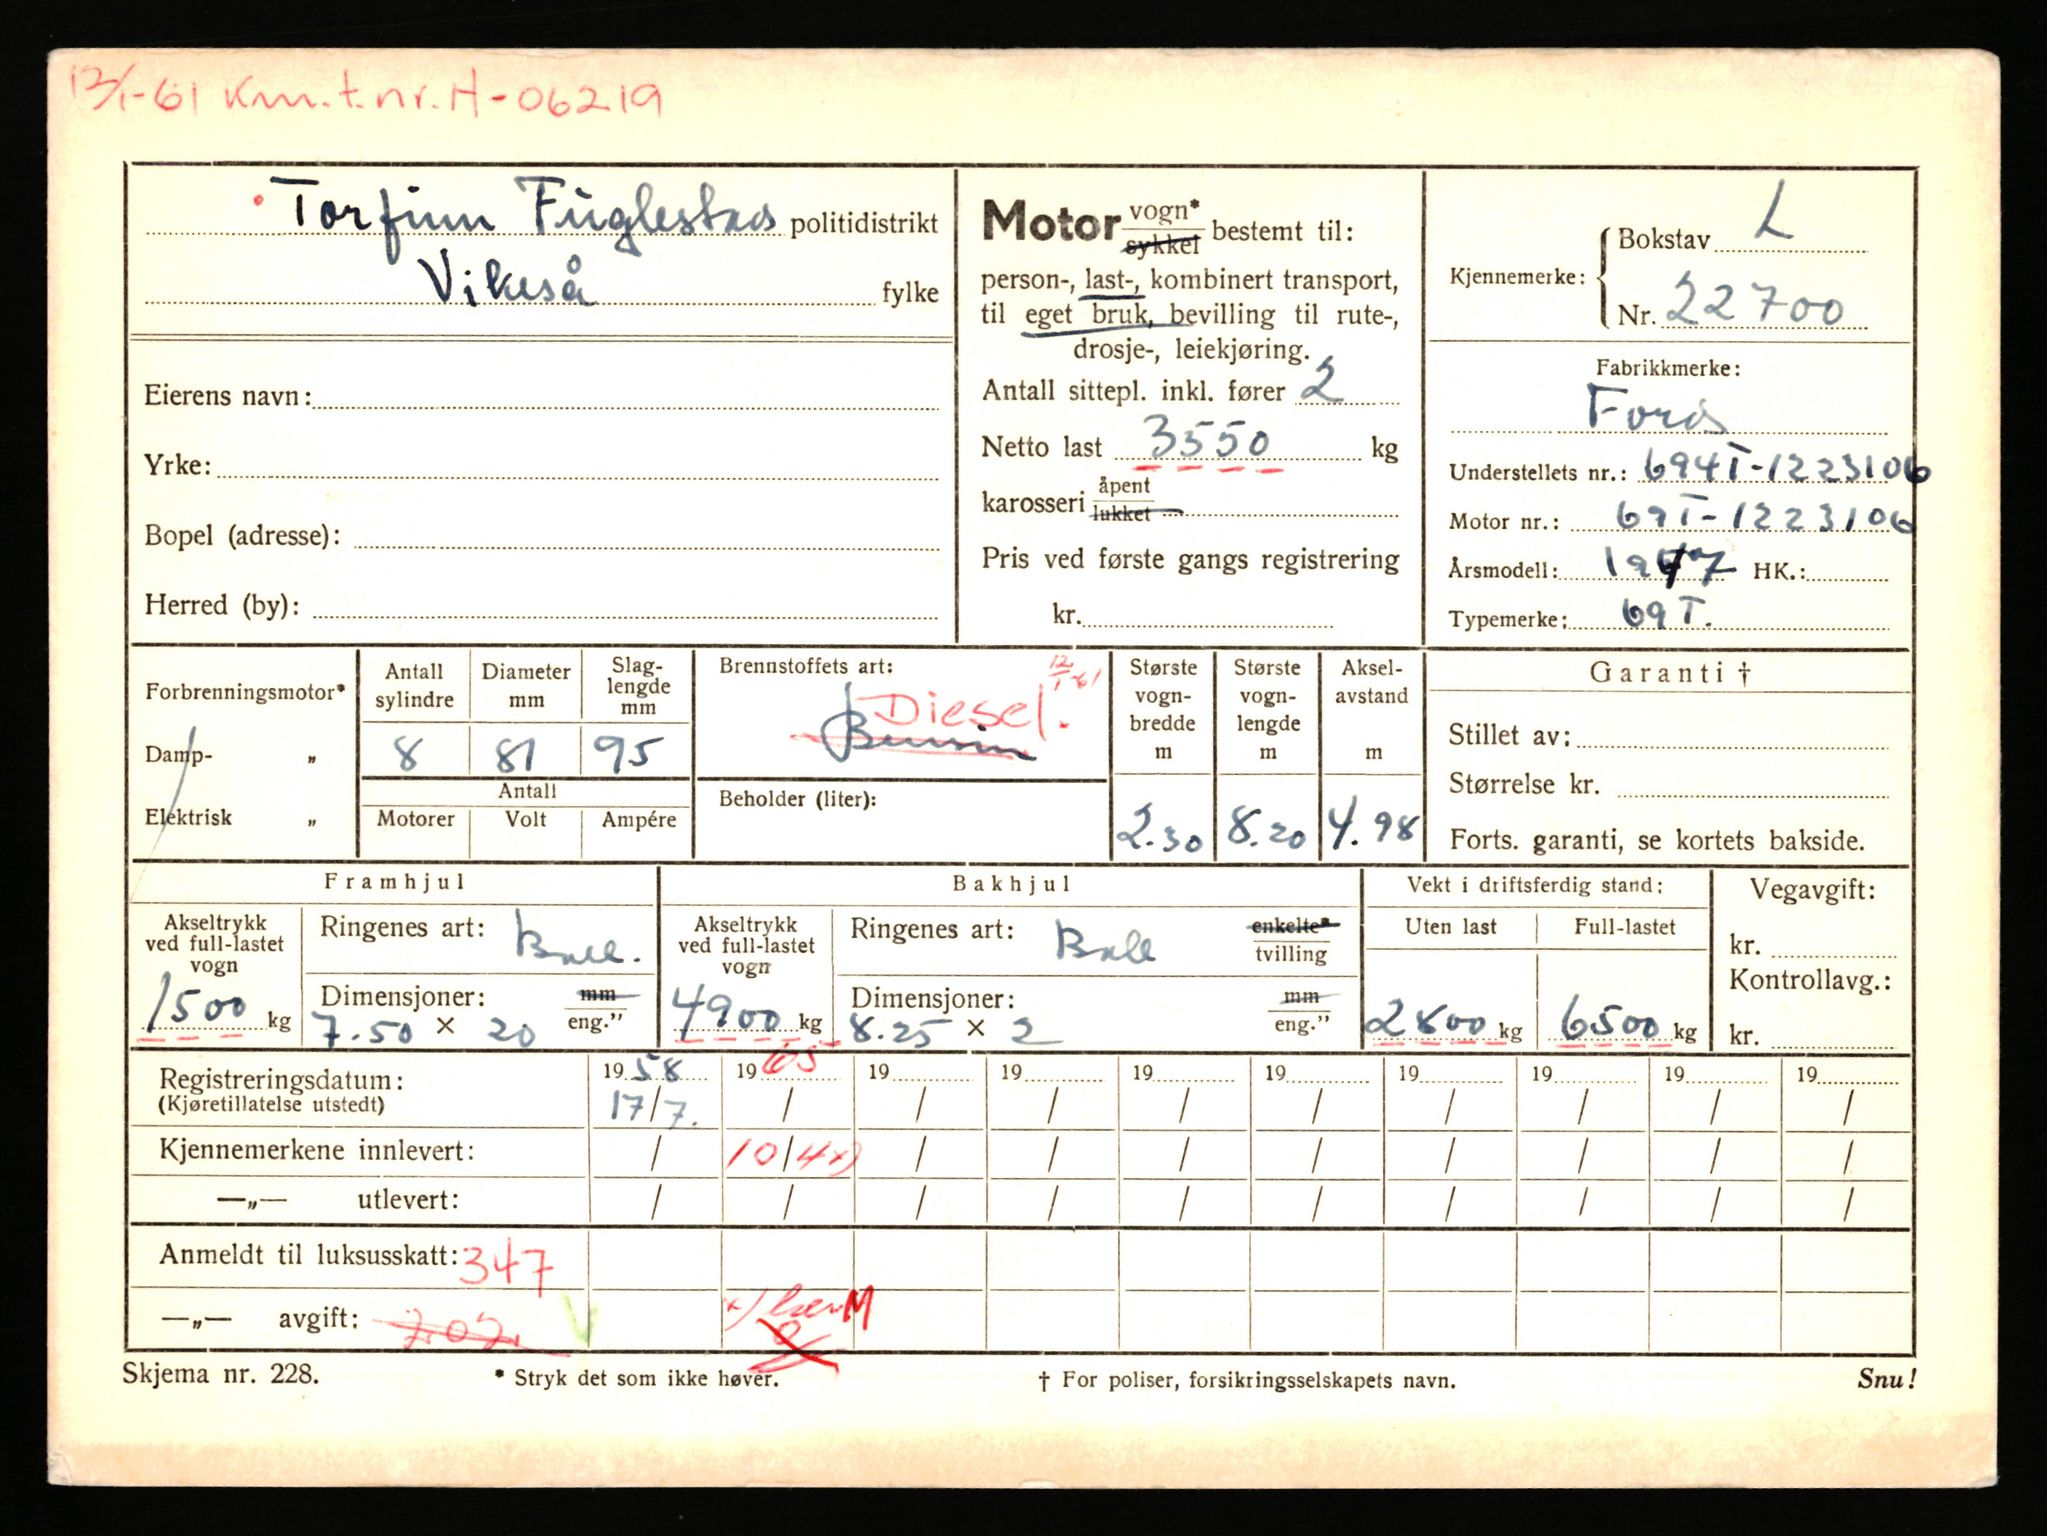 12/1-61 Km.t.nr. H-06219
Torfinn Fuglestad politidistrikt
Vikeså fylke
Eierens navn:
Yrke:
Bopel (adresse):
Herred (by):
Motor vogn* sykkel bestemt til:
person-, last-, kombinert transport,
til eget bruk, bevilling til rute-,
drosje-, leiekjøring.
Antall sittepl. inkl. fører 2
Netto last 3550 kg
karosseri åpent lukket
Pris ved første gangs registrering
kr.
Kjennemerke: Bokstav L
Nr. 22700
Fabrikkmerke:
Ford
Understellets nr.: 694T-1223106
Motor nr.: 69T-1223106
Årsmodell: 1947 HK.:
Typemerke: 69T.
Forbrenningsmotor*
Damp- „
Elektrisk „
Antall sylindre Diameter mm Slag-lengde mm
8 81 95
Antall
Motorer Volt Ampére
Brennstoffets art: 12/1-61
Diesel.
Bensin
Beholder (liter):
Største vogn-bredde m
2.30
Største vogn-lengde m
8.20
Aksel-avstand m
4.98
Garanti †
Stillet av:
Størrelse kr.
Forts. garanti, se kortets bakside.
Framhjul
Akseltrykk ved full-lastet vogn
1500 kg
Ringenes art: Ball.
Dimensjoner: mm eng."
7.50 × 20
Bakhjul
Akseltrykk ved full-lastet vogn
4900 kg
Ringenes art: Ball enkelte* tvilling
Dimensjoner: mm eng."
8.25 × 2
Vekt i driftsferdig stand:
Uten last Full-lastet
2800 kg 6500 kg
Vegavgift:
kr.
Kontrollavg.:
kr.
Registreringsdatum: 1958 1965 19 19 19 19 19 19 19 19
(Kjøretillatelse utstedt) 17/7. / / / / / / / / /
Kjennemerkene innlevert: / 10/4 x) / / / / / / / /
—„— utlevert: / / / / / / / / / /
Anmeldt til luksusskatt: 347
—„— avgift: x) M
Skjema nr. 228. * Stryk det som ikke høver. † For poliser, forsikringsselskapets navn. Snu!